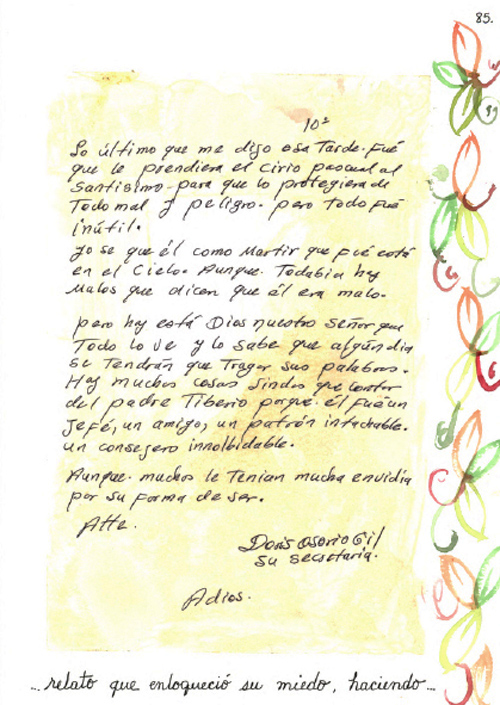 85.
10²
Lo último que me digo esa Tarde. Fué
que le prendiera el Cirio pascual al
Santisimo - para que lo protegiera de
Todo mal y peligro. pero todo fué
inútil.
Yo se que él como Martir que fué está
en el Cielo. Aunque. Todabia hay
Malos que dicen que él era malo.
pero hay está Dios nuestro Señor que
Todo lo ve y lo sabe que algún dia
se Tendrán que Tragar sus palabras.
Hay muchas cosas lindas que contar
del padre Tiberio porque él fué un
Jefé, un amigo, un patrón intachable.
un consegero innolbidable.
Aunque. muchos le Tenian mucha envidia
por su forma de ser.
Atte.
Doris Osorio Gil
su secretaria.
Adios.
... relato que enloqueció su miedo, haciendo ...